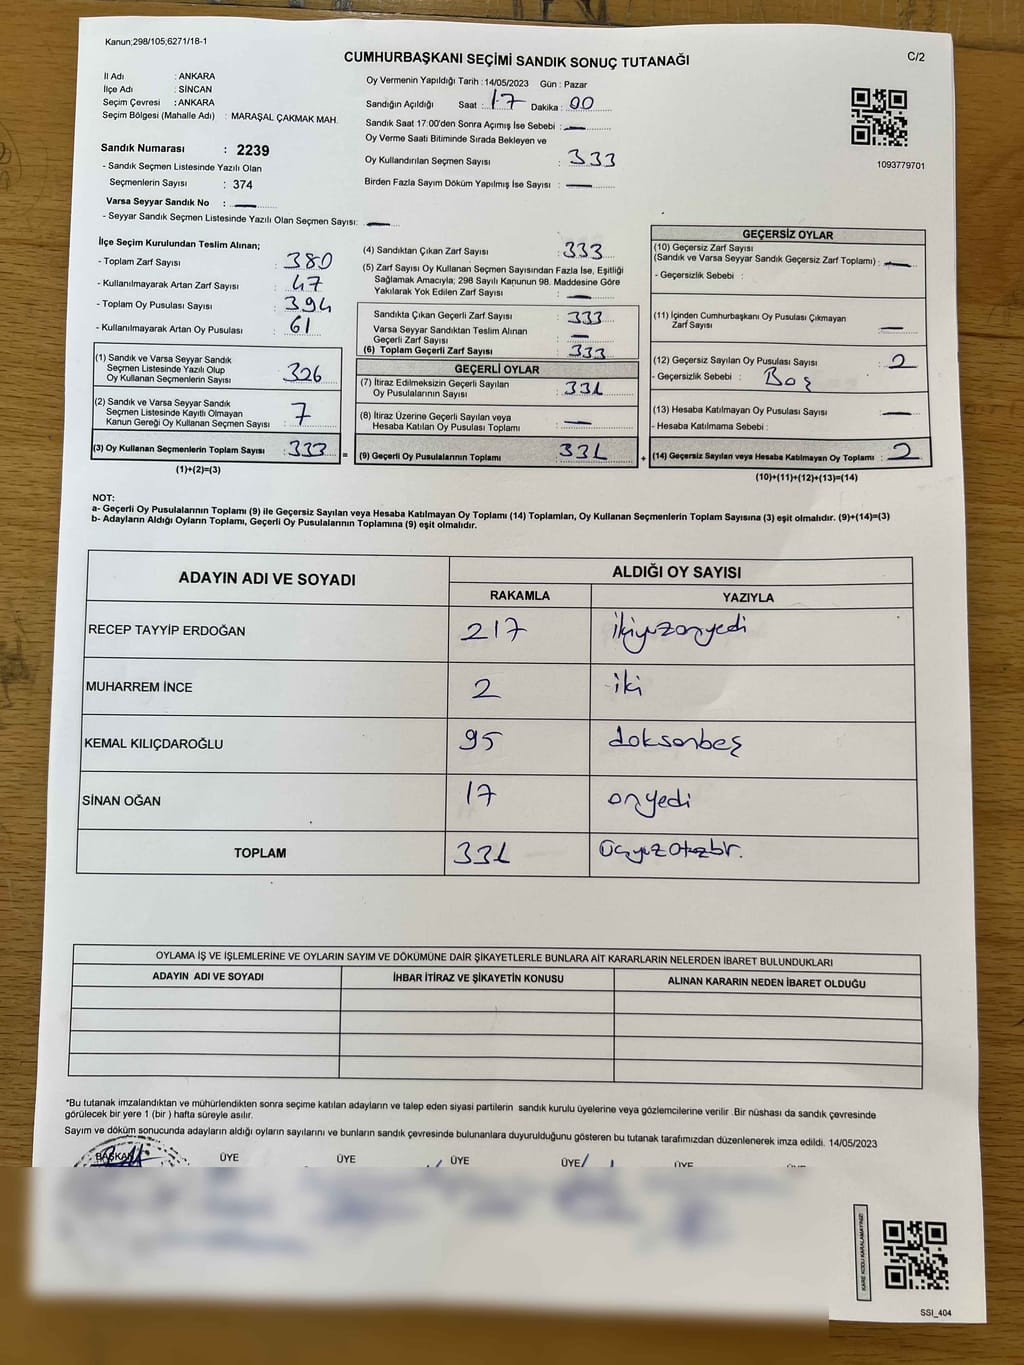 Kanun;298/105;6271/18-1
C/2
CUMHURBAŞKANI SEÇİMİ SANDIK SONUÇ TUTANAĞI
İl Adı : ANKARA
İlçe Adı : SİNCAN
Seçim Çevresi : ANKARA
Seçim Bölgesi (Mahalle Adı) : MARAŞAL ÇAKMAK MAH.
Sandık Numarası : 2239
- Sandık Seçmen Listesinde Yazılı Olan
Seçmenlerin Sayısı : 374
Varsa Seyyar Sandık No : —
- Seyyar Sandık Seçmen Listesinde Yazılı Olan Seçmen Sayısı: —
Oy Vermenin Yapıldığı Tarih : 14/05/2023 Gün : Pazar
Sandığın Açıldığı Saat : 17 Dakika : 00
Sandık Saat 17:00'den Sonra Açımış İse Sebebi : —
Oy Verme Saati Bitiminde Sırada Bekleyen ve
Oy Kullandırılan Seçmen Sayısı : 333
Birden Fazla Sayım Döküm Yapılmış İse Sayısı : —
1093779701
İlçe Seçim Kurulundan Teslim Alınan;
- Toplam Zarf Sayısı : 380
- Kullanılmayarak Artan Zarf Sayısı : 47
- Toplam Oy Pusulası Sayısı : 394
- Kullanılmayarak Artan Oy Pusulası : 61
(1) Sandık ve Varsa Seyyar Sandık
Seçmen Listesinde Yazılı Olup
Oy Kullanan Seçmenlerin Sayısı : 326
(2) Sandık ve Varsa Seyyar Sandık
Seçmen Listesinde Kayıtlı Olmayan
Kanun Gereği Oy Kullanan Seçmen Sayısı : 7
(3) Oy Kullanan Seçmenlerin Toplam Sayısı : 333 =
(1)+(2)=(3)
(4) Sandıktan Çıkan Zarf Sayısı : 333
(5) Zarf Sayısı Oy Kullanan Seçmen Sayısından Fazla İse, Eşitliği
Sağlamak Amacıyla; 298 Sayılı Kanunun 98. Maddesine Göre
Yakılarak Yok Edilen Zarf Sayısı : —
Sandıkta Çıkan Geçerli Zarf Sayısı : 333
Varsa Seyyar Sandıktan Teslim Alınan
Geçerli Zarf Sayısı : —
(6) Toplam Geçerli Zarf Sayısı : 333
GEÇERLİ OYLAR
(7) İtiraz Edilmeksizin Geçerli Sayılan
Oy Pusulalarının Sayısı : 331
(8) İtiraz Üzerine Geçerli Sayılan veya
Hesaba Katılan Oy Pusulası Toplamı : —
(9) Geçerli Oy Pusulalarının Toplamı : 331 +
GEÇERSİZ OYLAR
(10) Geçersiz Zarf Sayısı
(Sandık ve Varsa Seyyar Sandık Geçersiz Zarf Toplamı) : —
- Geçersizlik Sebebi :
(11) İçinden Cumhurbaşkanı Oy Pusulası Çıkmayan
Zarf Sayısı : —
(12) Geçersiz Sayılan Oy Pusulası Sayısı : 2
- Geçersizlik Sebebi : Boş
(13) Hesaba Katılmayan Oy Pusulası Sayısı : —
- Hesaba Katılmama Sebebi :
(14) Geçersiz Sayılan veya Hesaba Katılmayan Oy Toplamı : 2
(10)+(11)+(12)+(13)=(14)
NOT:
a- Geçerli Oy Pusulalarının Toplamı (9) ile Geçersiz Sayılan veya Hesaba Katılmayan Oy Toplamı (14) Toplamları, Oy Kullanan Seçmenlerin Toplam Sayısına (3) eşit olmalıdır. (9)+(14)=(3)
b- Adayların Aldığı Oyların Toplamı, Geçerli Oy Pusulalarının Toplamına (9) eşit olmalıdır.
ADAYIN ADI VE SOYADI ALDIĞI OY SAYISI
RAKAMLA YAZIYLA
RECEP TAYYİP ERDOĞAN 217 ikiyüzonyedi
MUHARREM İNCE 2 iki
KEMAL KILIÇDAROĞLU 95 doksanbeş
SİNAN OĞAN 17 onyedi
TOPLAM 331 Üçyüzotuzbir.
OYLAMA İŞ VE İŞLEMLERİNE VE OYLARIN SAYIM VE DÖKÜMÜNE DAİR ŞİKAYETLERLE BUNLARA AİT KARARLARIN NELERDEN İBARET BULUNDUKLARI
ADAYIN ADI VE SOYADI İHBAR İTİRAZ VE ŞİKAYETİN KONUSU ALINAN KARARIN NEDEN İBARET OLDUĞU
*Bu tutanak imzalandıktan ve mühürlendikten sonra seçime katılan adayların ve talep eden siyasi partilerin sandık kurulu üyelerine veya gözlemcilerine verilir .Bir nüshası da sandık çevresinde
görülecek bir yere 1 (bir ) hafta süreyle asılır.
Sayım ve döküm sonucunda adayların aldığı oyların sayılarını ve bunların sandık çevresinde bulunanlara duyurulduğunu gösteren bu tutanak tarafımızdan düzenlenerek imza edildi. 14/05/2023
BAŞKAN ÜYE ÜYE ÜYE ÜYE ÜYE ÜYE
KARE KODU KARALAMAYINIZ!
SSI_404